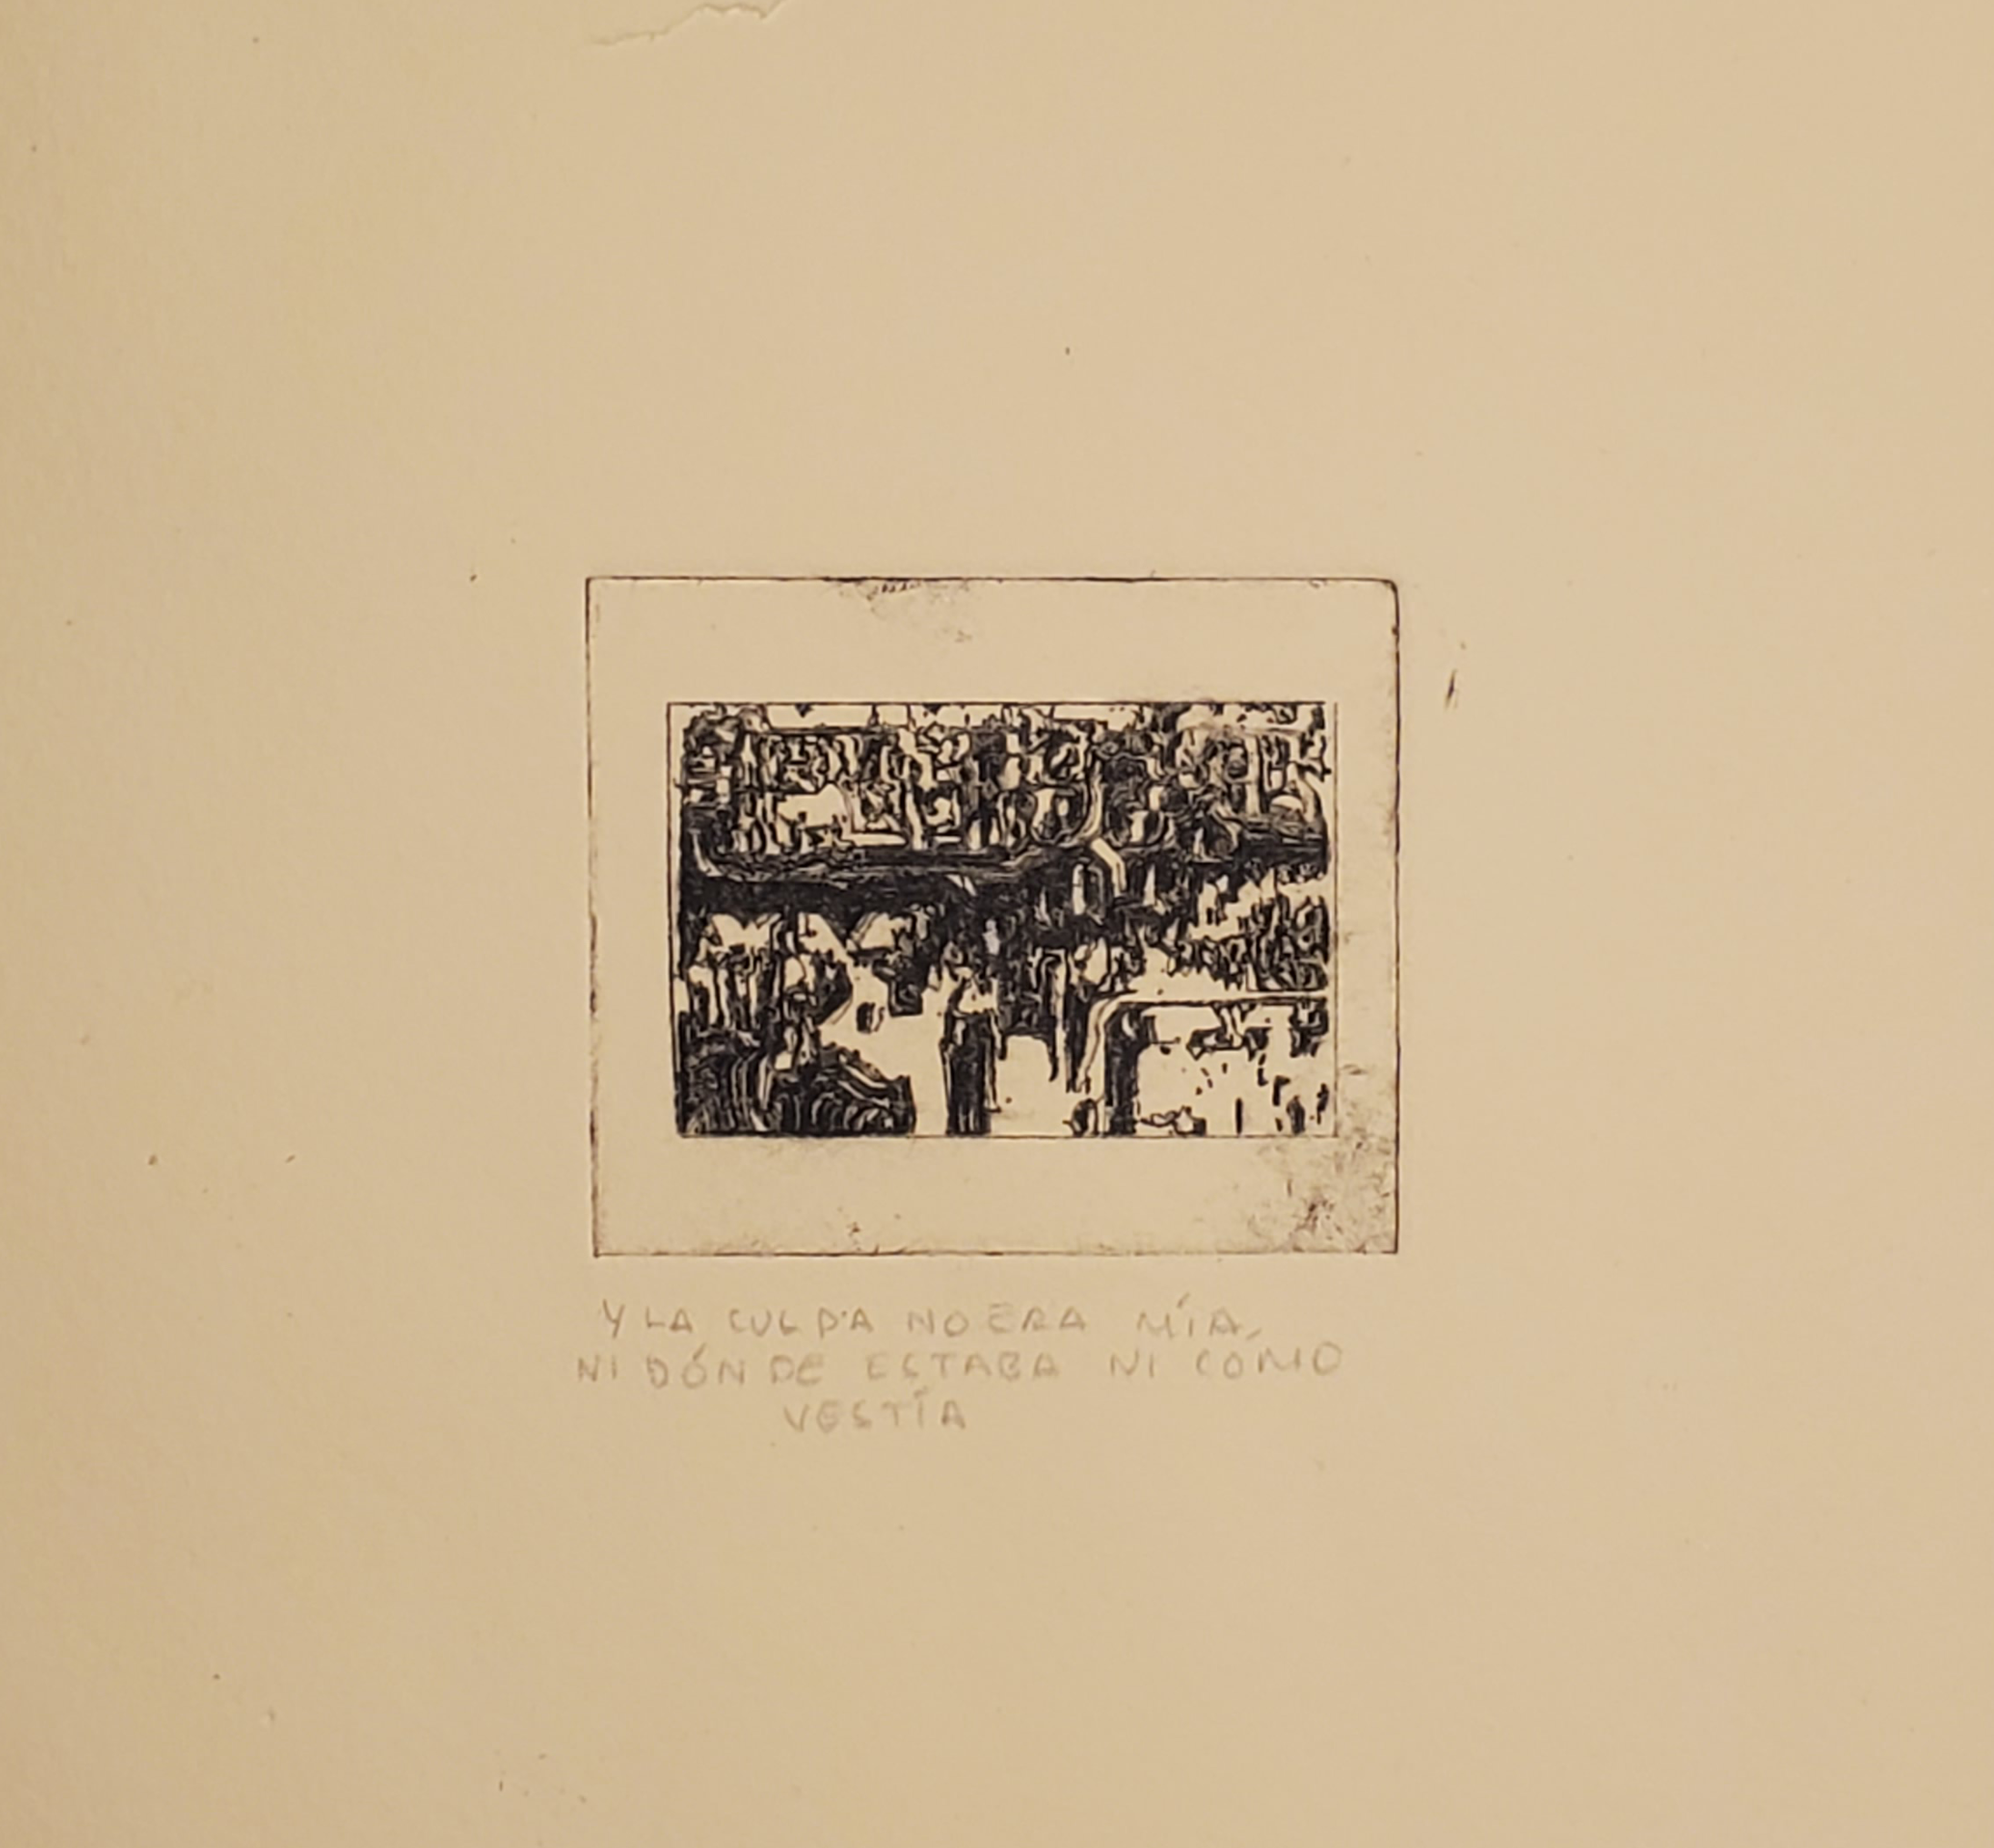 Y LA CULPA NO ERA MÍA,
NI DÓNDE ESTABA NI COMO
VESTÍA